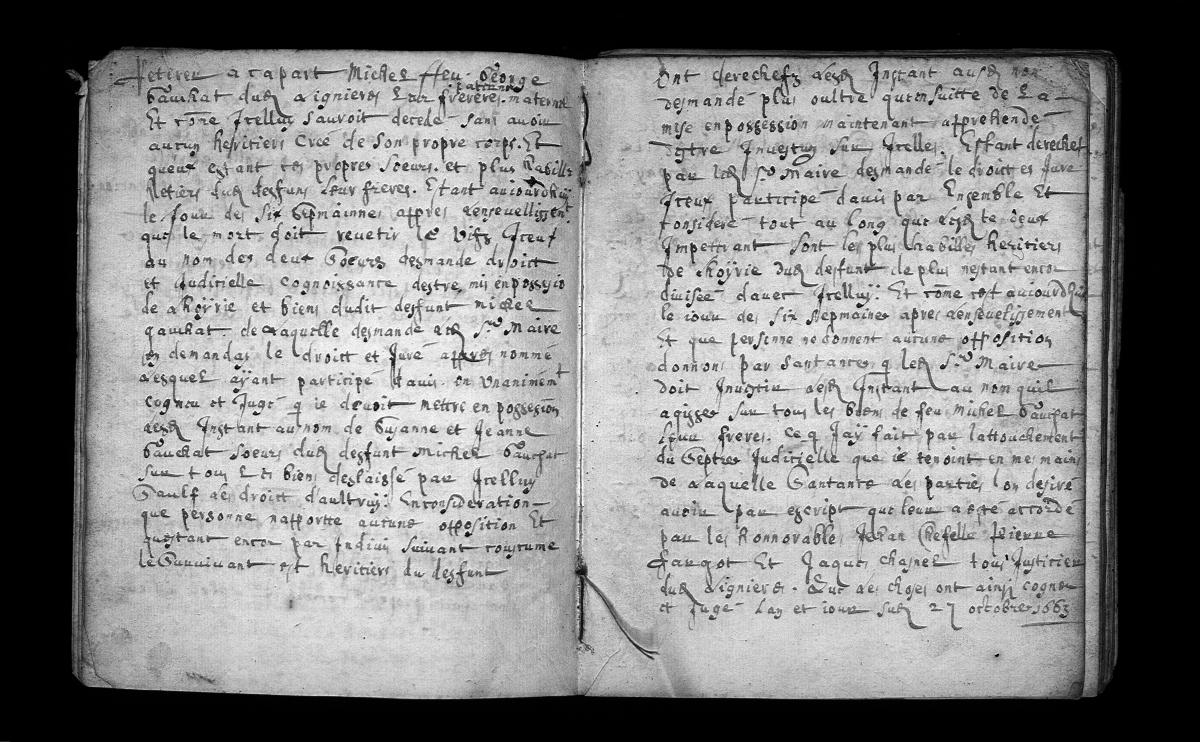 retirer a capart Michel ffeu George
Gauchat dud Lignieres Leur frereres maternel
et paternel
Et cõme Jcelluy sauroit decedé sans avoir
aucun heritiers Creé de son propre corps. Et
queux estant tes propres Soeurs. et plus habille
Retiers dud desfunt leur frere. Etant aujourdhuy
le Jour des six sepmainnes appres lensevellissent
que le mort doit revetir le vifz Jceux
au nom des deux Soeurs desmande droict
et Judicielle cognoissance destre mis en possesio
de lhoÿrie et biens dudit desfunt michel
gauchat de laquelle desmande led Sr Maire
en demanday le droict et Juré appres nommé
Lesquel aÿant participé d'avis on Unaniment
cogneu et Jugé q ie devoit mettre en possesion
lesd Instant au nom de Susanne et Jeanne
Gauchat soeurs dud desfunt Michel Gauchat
sur tous les biens deslaissé par Jcelluy
Saulf les droict d'aultruy: En consideration
que personne napportte aucune opposition Et
questant encor par Indivis suivant coustume
le Survivant est heritiers du desfunt
Ont derechefz lesd Instant ausd nom
desmandé plus oultre quensuitte de La
mise en possession maintenant apprehendé
destre Investus sur Jcelles. Estant derechef
par led Sr Maire desmandé le droict es Juré
Jceux participé davis par Ensemble Et
consideré tout au long que lesd te deux
Impettrant sont les plus habilles heritiers
de lhoÿrie dud desfunt de plus nestant encor
divisée d'avec Jcelluÿ. Et cõme cest aujourdhuy
le iour des six sepmaines apres lensevelissement
Et que personne ne donnent aucune opposition
donnons par santance q led Sr Maire
doit Investir lesd Instant au nom quil
agisse sur tous les biens de feu Michel Gauchat
leur frere. ce q Jaÿ fait par lattouchement
du Septre Judicielle que ie tenoint en mes mains
de laquelle Santance les parties lon desiré
avoir par escript que leur a esté accordé
par les honnorables Jehan Chiffelle Pierre
Jargot Et Jaques chasnel tous Justicier
dud Lignieres. Que les choses ont ainsi cogneu
et Jugé Lan et iour sud 27 octobre 1663